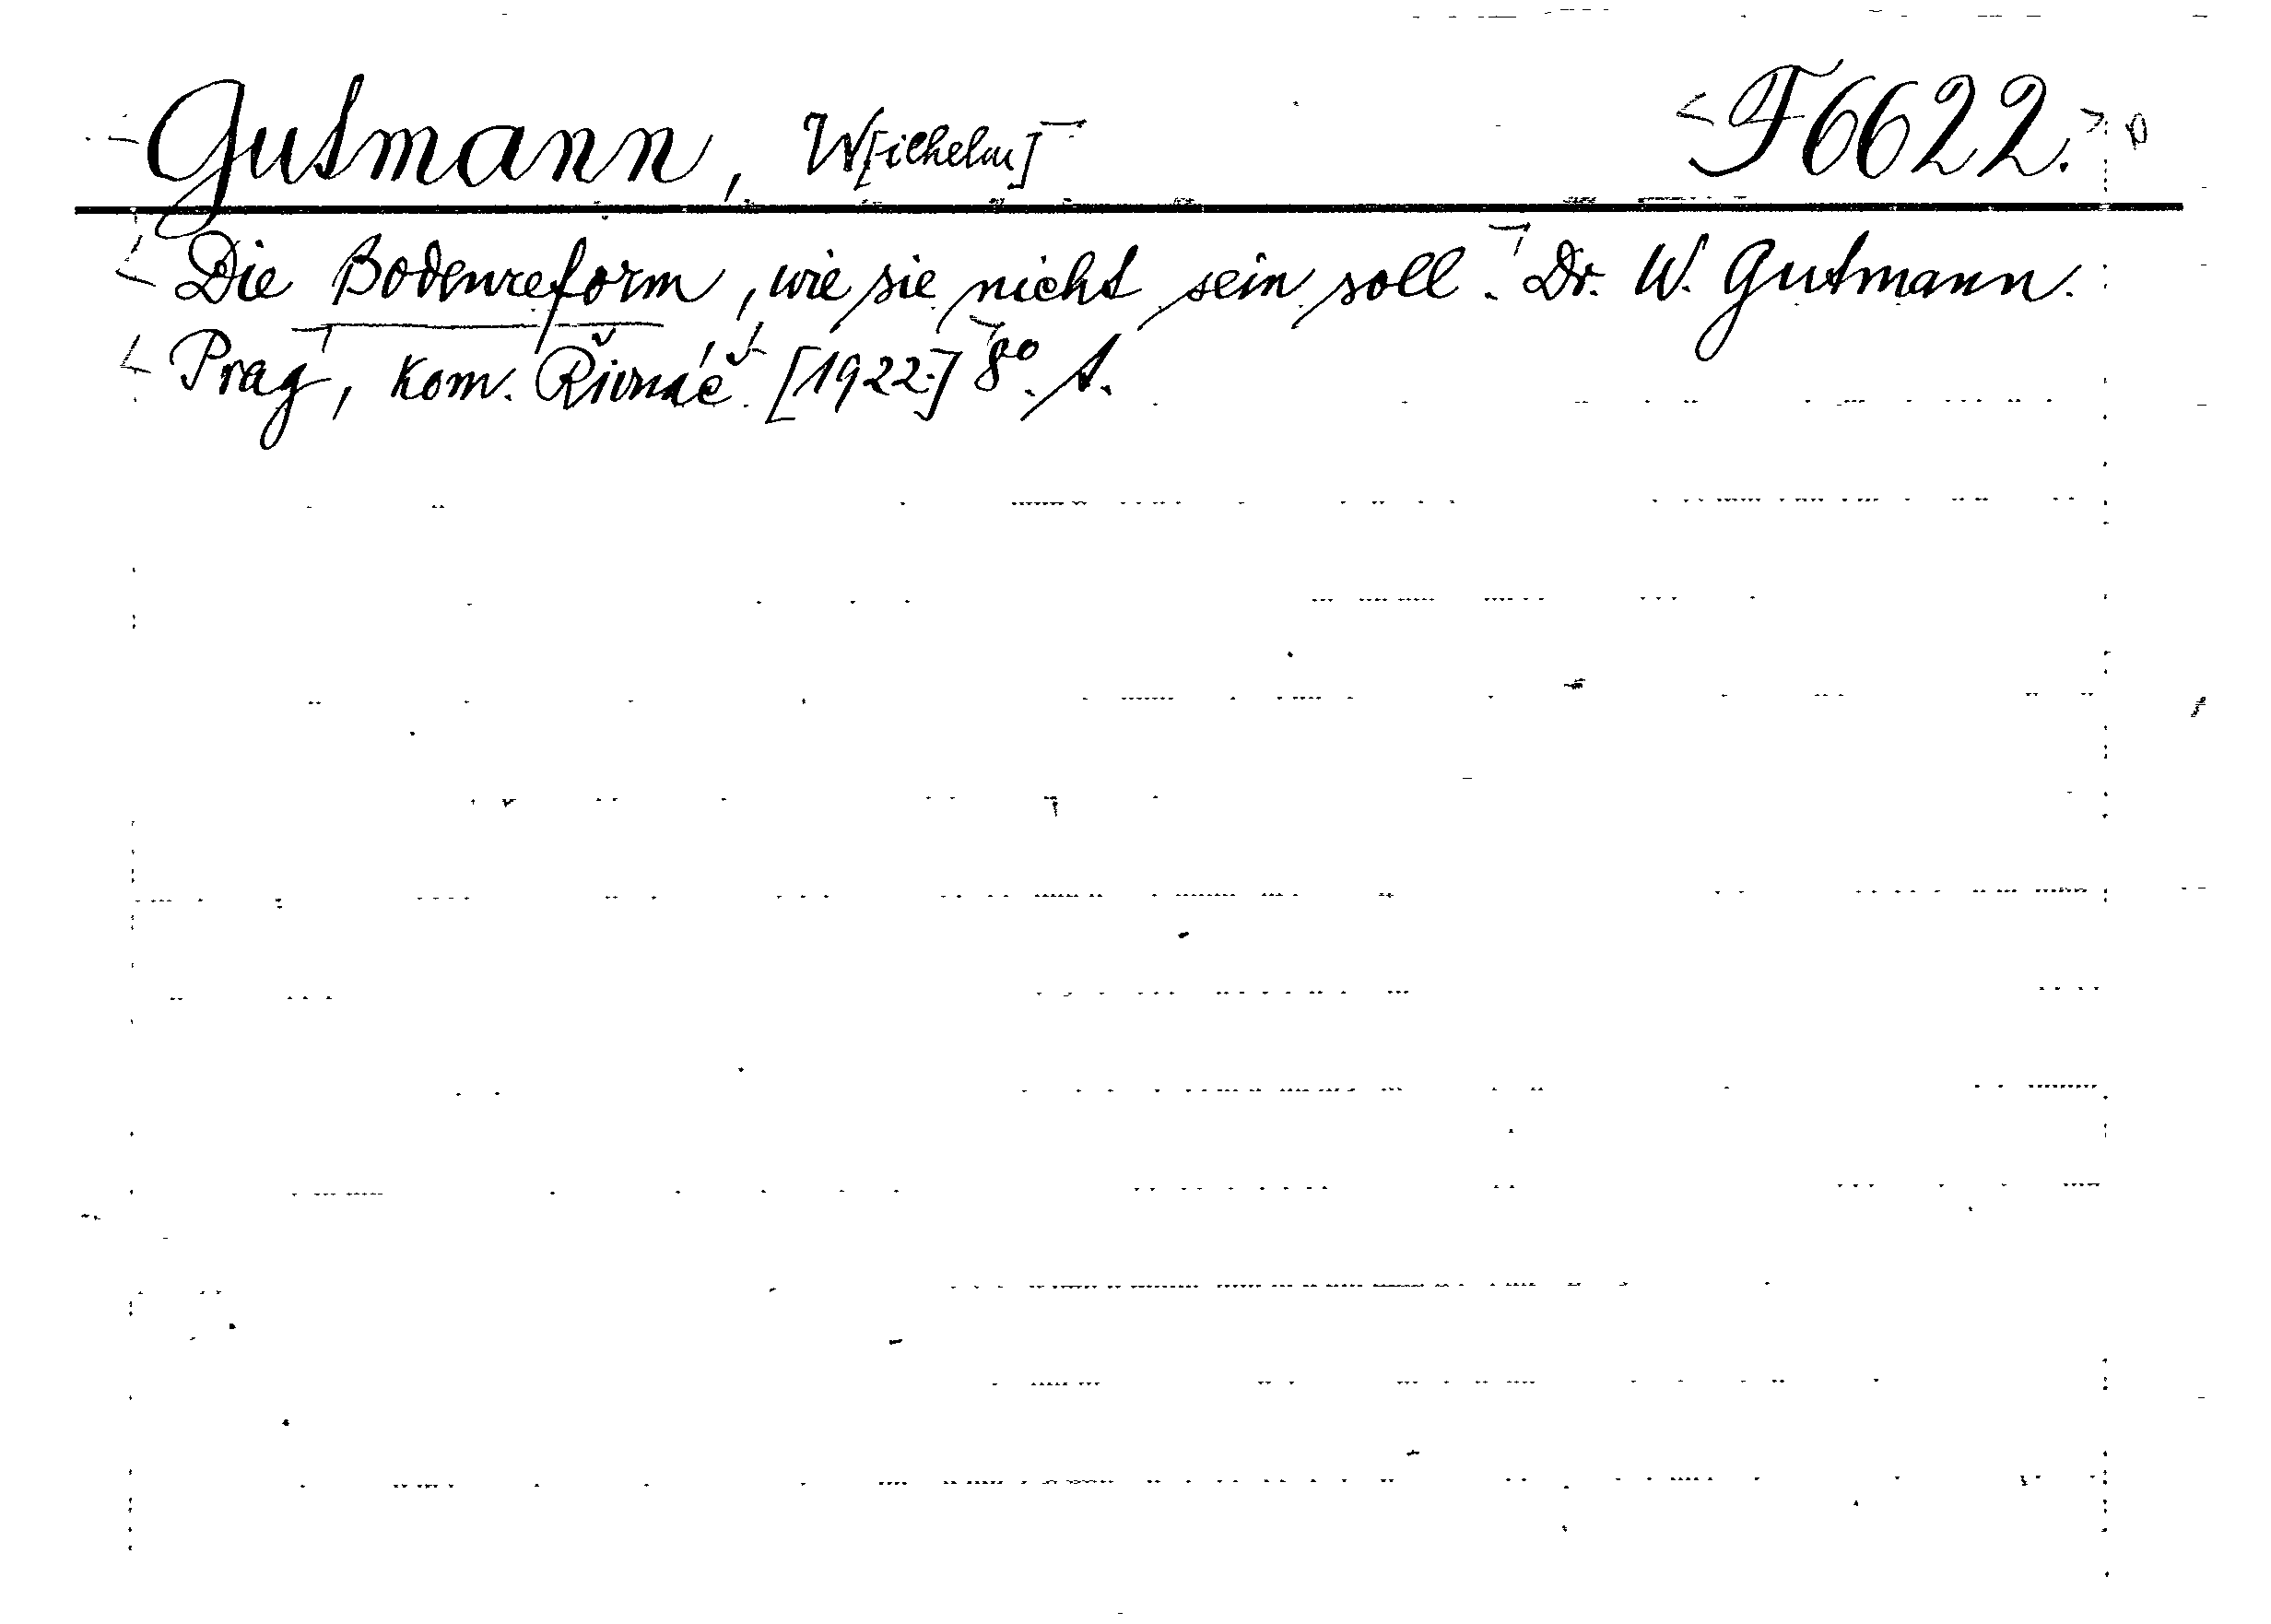 Gutmann, W[ilhelm] F6622.
Die Bodenreform, wie sie nicht sein soll. Dr. W. Gutmann.
Prag, Kom. Řivnáč. [1922.] 8º.